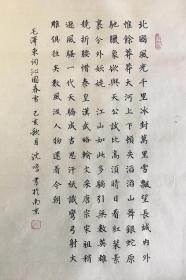 北國風光千里冰封萬里雪飄望長城內外
惟餘莽莽大河上下頓失滔滔山舞銀蛇原
馳蠟象欲與天公試比高須晴日看紅裝素
裹分外妖嬈江山如此多嬌引無數英雄
競折腰惜秦皇漢武略輸文采唐宗宋祖稍
遜風騷一代天驕成吉思汗祇識彎弓射大
雕俱往矣數風流人物還看今朝
毛澤東詞沁園春雪 己亥秋月沈書於南京